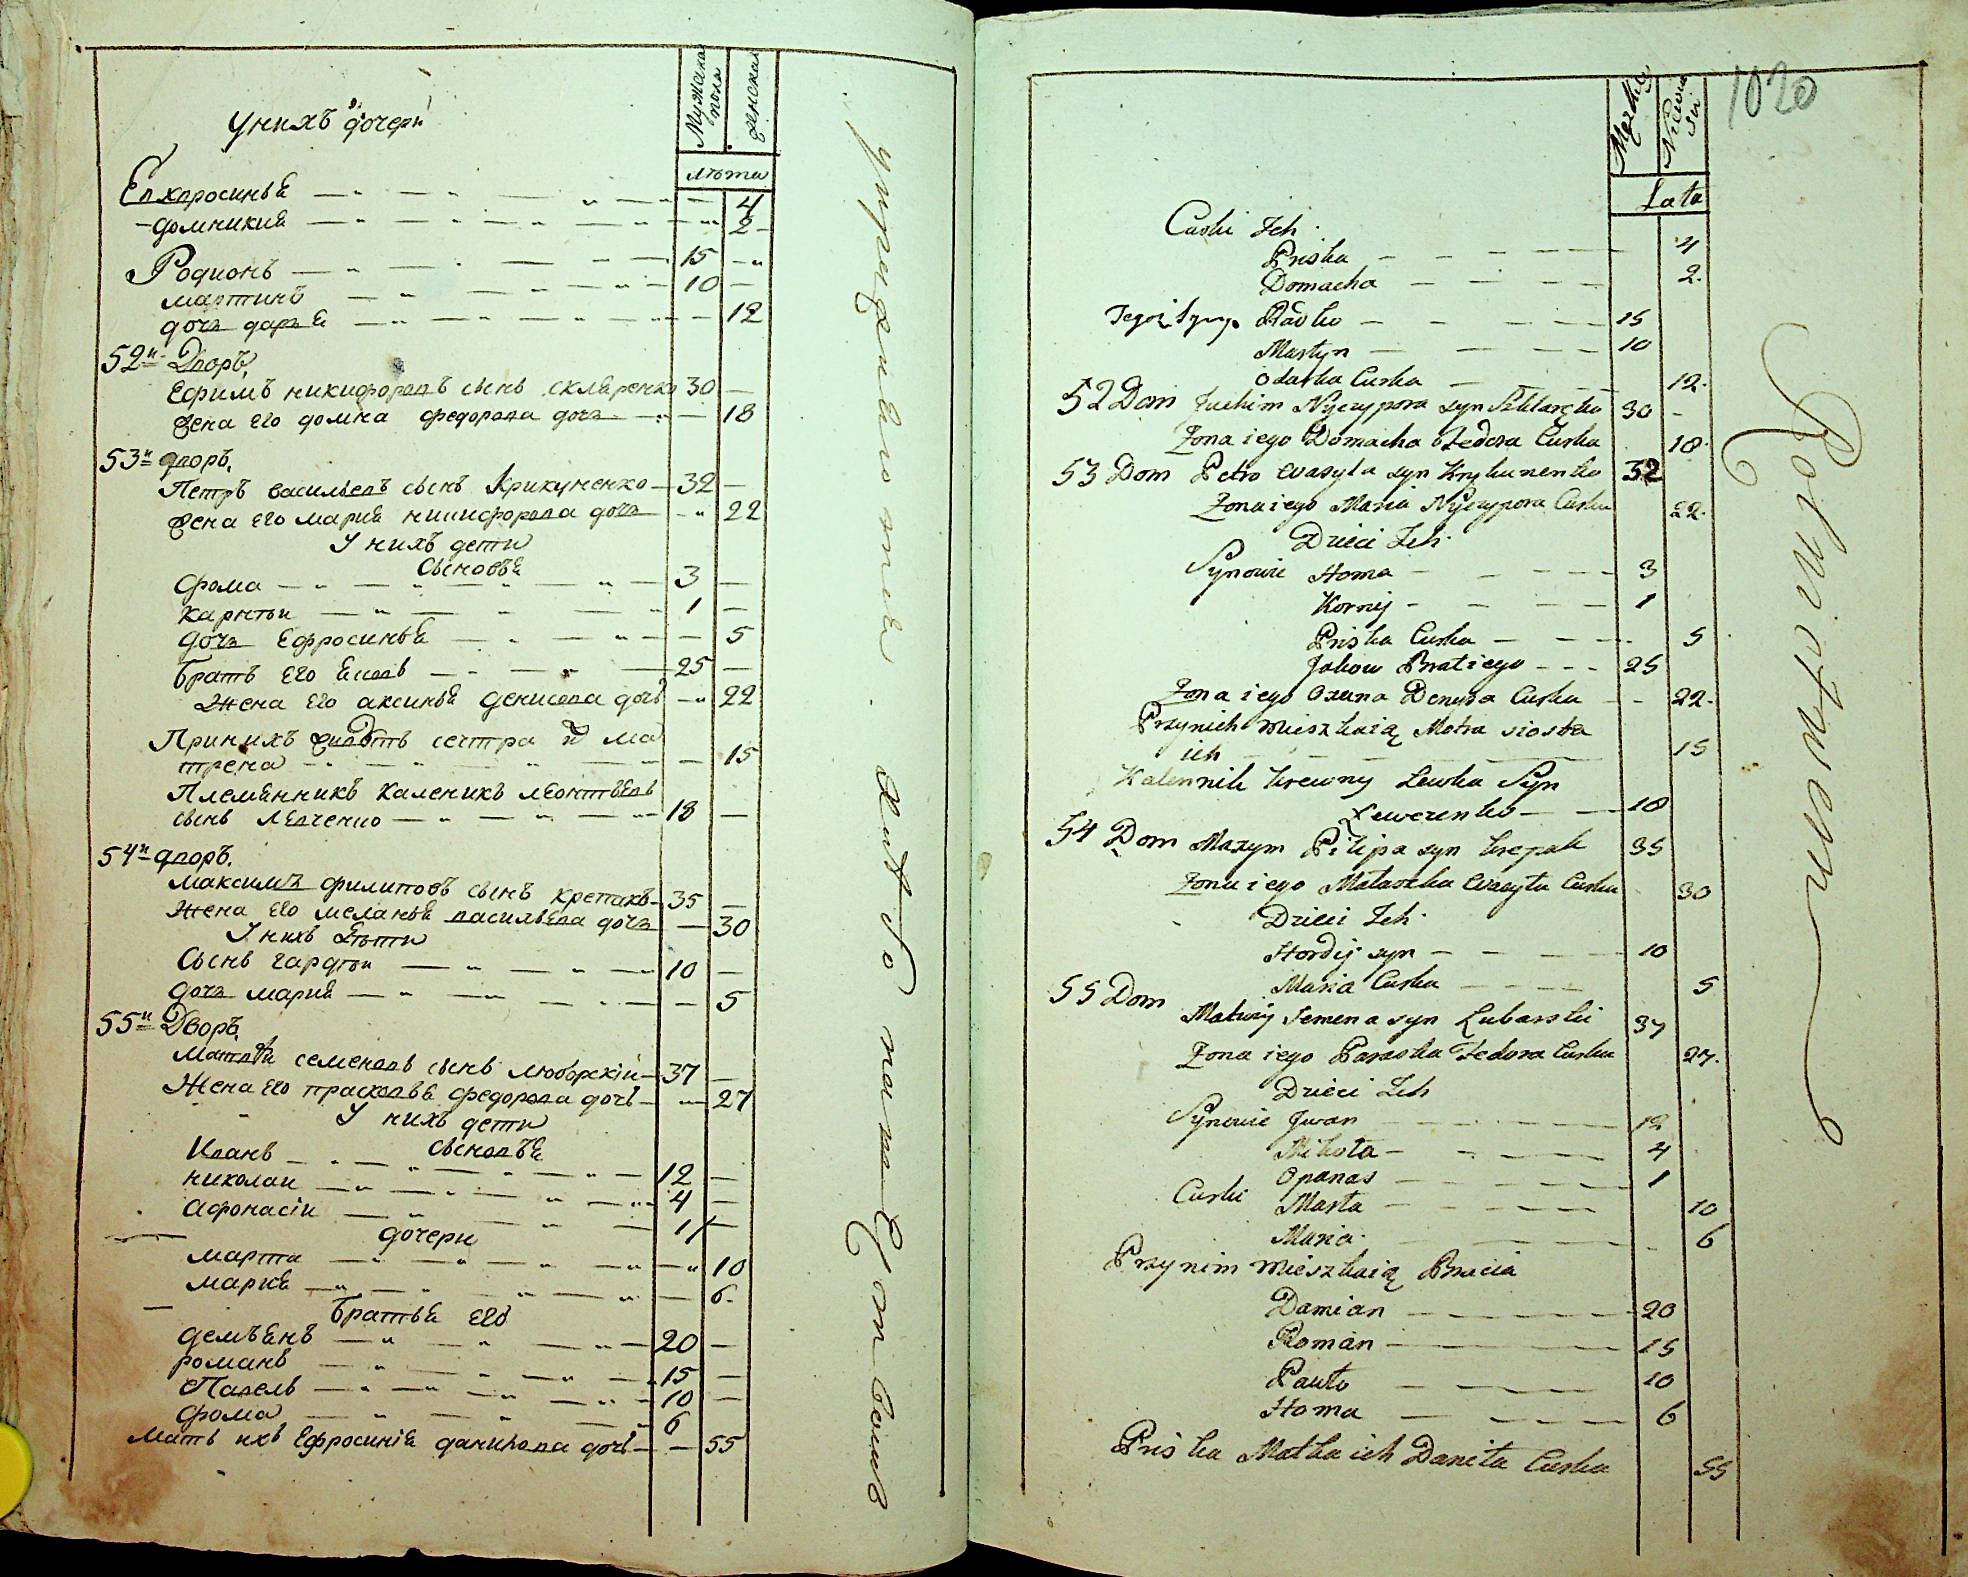 У нихъ дочери
Мужска пола
женска
лѣта
Евхвросинья 4
домникия 2
Родионъ 15
мартинъ 10
дочь дарья 12
52й Дворъ
Ефимъ никифоровъ сынъ скляренко 30
жена его домна федорова дочь 18
53й дворъ
Петръ васильевъ сынъ Крикуненко 32
жена его мария никифорова дочь 22
У нихъ дети
сыновья
фома 3
карнѣи 1
дочь Ефросинья 5
братъ его яковъ 25
Жена его аксинья денисова дочь 22
При нихъ живѣтъ сестра ма
трена 15
Племянникъ каленикъ леонтьевъ
сынъ левченко 18
54й дворъ
максимъ филиповъ сынъ крепакъ 35
Жена его меланья васильева дочь 30
У нихъ дѣти
Сынъ гардѣи 10
дочь мария 5
55й Дворъ
Матвѣи семеновъ сынъ любарскій 37
Жена его прасковья федорова дочь 27
У нихъ дети
сыновья
Иванъ 12
николаи 4
афонасіи 1
дочери
марта 10
мария 6
братья его
демьянъ 20
романъ 15
Павелъ 10
фома 6
Мать ихъ Ефросинія данилова дочь 55
1020
Męzkiey
Niewie
sci
Lata
Curki Ich
Priska 4
Domacha 2
Tegoż Syny Radko 15
Martyn 10
Odarka Curka 12
52 Dom Juchim Nyczypora syn Szklaręko 30
Zona iego Domacha Fedora Curka 18
53 Dom Petro Wasyla syn Krykunenko 32
Zona iego Maria Nyczypora Curka 22
Dzieci Ich
Synowie Homa 3
Kornij 1
Priska Curka 5
Jakow Brat iego 25
Zona iego Oxana Denysa Curka 22
Przy nich mieszkaią Motra siostra
ich 15
Kalennik krewny Lewka Syn
Lewczenko 18
54 Dom Maxym Pilipa syn Krepak 35
Zona iego Malaszka Wasyla Curka 30
Dzieci Ich
Hordij syn 10
Maria Curka 5
55 Dom
Matwij Semena syn Lubarski 37
Zona iego Paraska Fedora Curka 27
Dzieci Ich
Synowie Iwan 12
Mikoła 4
Opanas 1
Curki Marta 10
Maria 6
Przy nim mieszkaią Bracia
Damian 20
Roman 15
Pawło 10
Homa 6
Priska Matka ich Daniła Curka 55